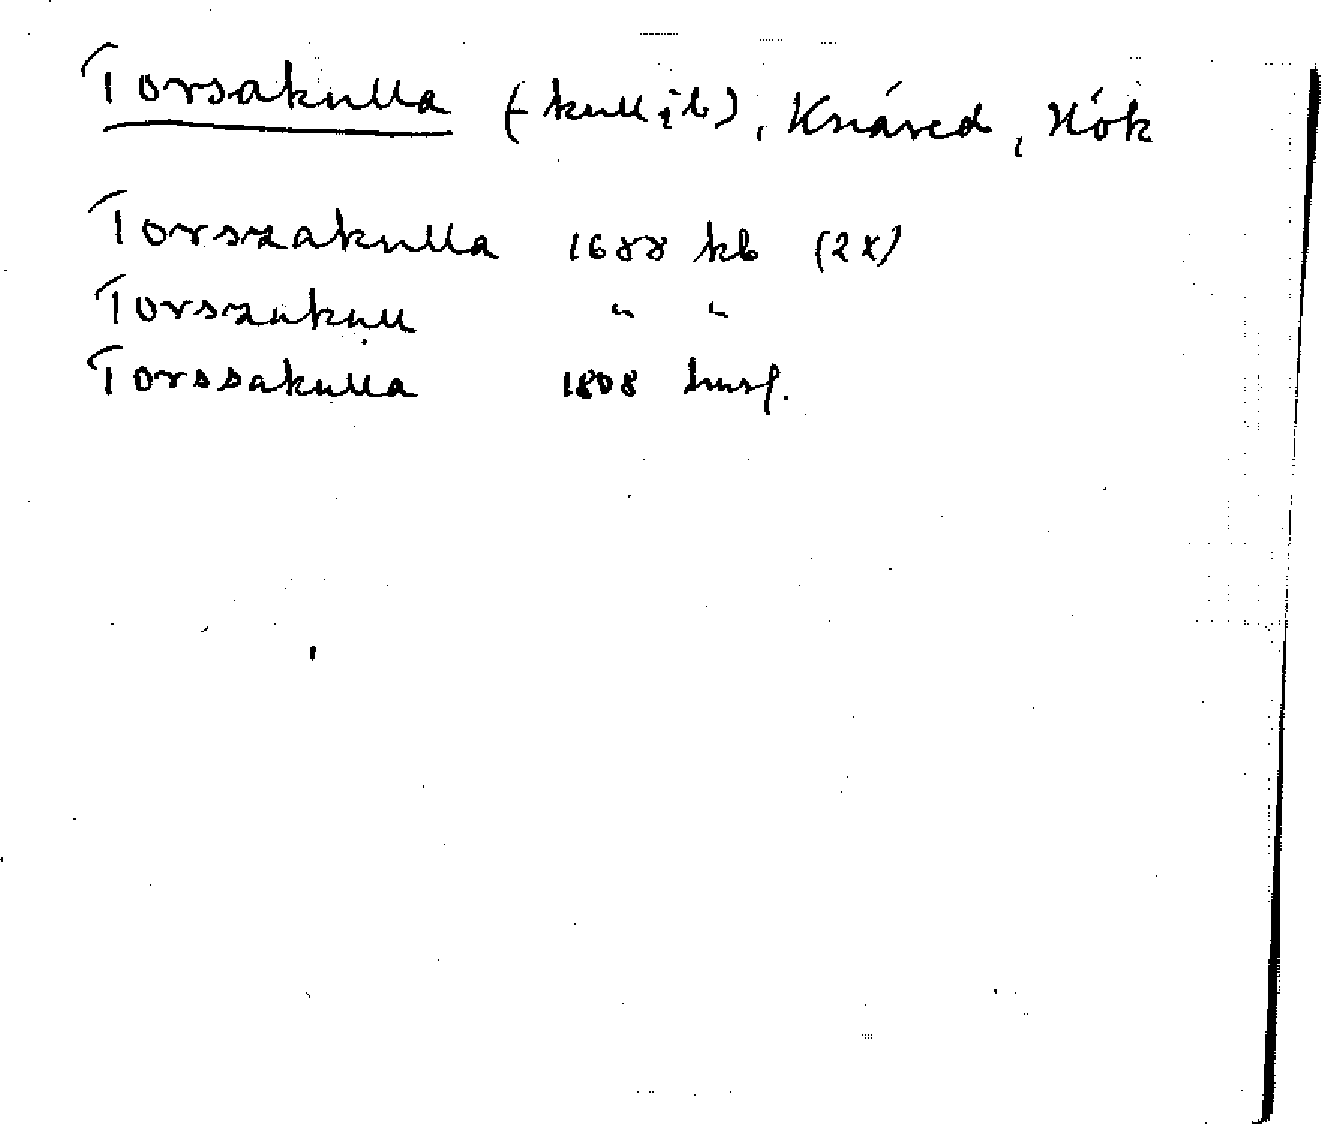 Torsakulla (-kull, ib), Knäred, Hök
Torszakulla 1688 kb (2x)
Torszakull " "
Torssakulla 1808 husf.